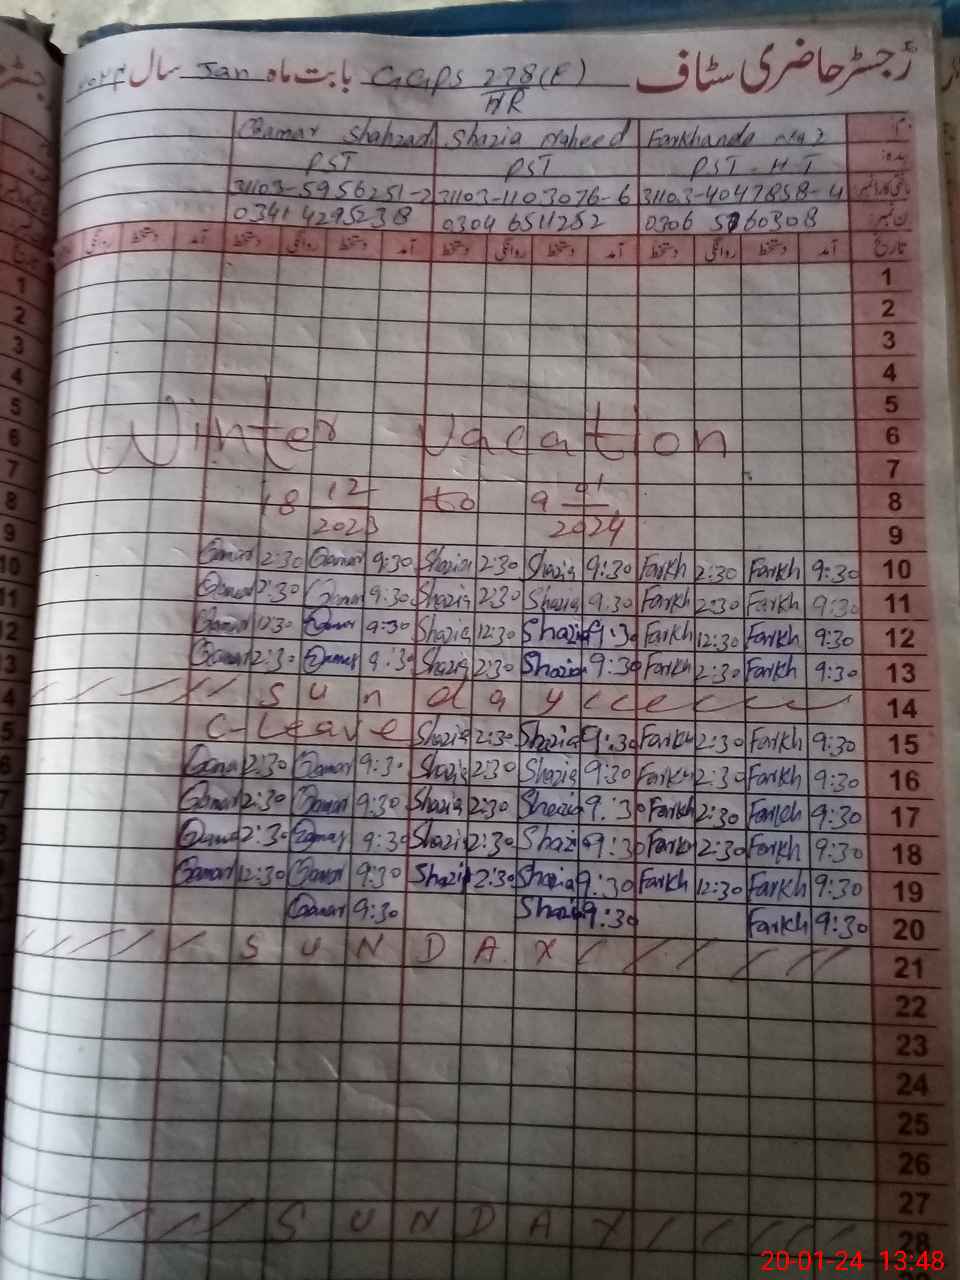 رجسٹر حاضری سٹاف GGPS 278(E)/HR بابت ماہ Jan سال ۲۰۲۴
Qamar Shahzad Shazia Naheed Farkhanda
PST PST PST-HT
31103-5956251-2 31103-1103076-6 31103-4047858-4
0341 4295238 0304 6511252 0306 5760308
تاریخ آمد دستخط روانگی دستخط آمد دستخط روانگی دستخط آمد دستخط روانگی دستخط
1
2
3
4
5
Winter vacation 6
7
18 12/2023 to 9 01/2024 8
9
Qamar 2:30 Qamar 9:30 Shazia 2:30 Shazia 9:30 Farkh 2:30 Farkh 9:30 10
Qamar 2:30 Qamar 9:30 Shazia 2:30 Shazia 9:30 Farkh 2:30 Farkh 9:30 11
Qamar 12:30 Qamar 9:30 Shazia 12:30 Shazia 9:30 Farkh 12:30 Farkh 9:30 12
Qamar 2:30 Qamar 9:30 Shazia 2:30 Shazia 9:30 Farkh 2:30 Farkh 9:30 13
Sunday 14
C-Leave Shazia 2:30 Shazia 9:30 Farkh 2:30 Farkh 9:30 15
Qamar 2:30 Qamar 9:30 Shazia 2:30 Shazia 9:30 Farkh 2:30 Farkh 9:30 16
Qamar 2:30 Qamar 9:30 Shazia 2:30 Shazia 9:30 Farkh 2:30 Farkh 9:30 17
Qamar 2:30 Qamar 9:30 Shazia 2:30 Shazia 9:30 Farkh 2:30 Farkh 9:30 18
Qamar 12:30 Qamar 9:30 Shazia 2:30 Shazia 9:30 Farkh 12:30 Farkh 9:30 19
Qamar 9:30 Shazia 9:30 Farkh 9:30 20
SUNDAY 21
22
23
24
25
26
27
SUNDAY 28
20-01-24 13:48